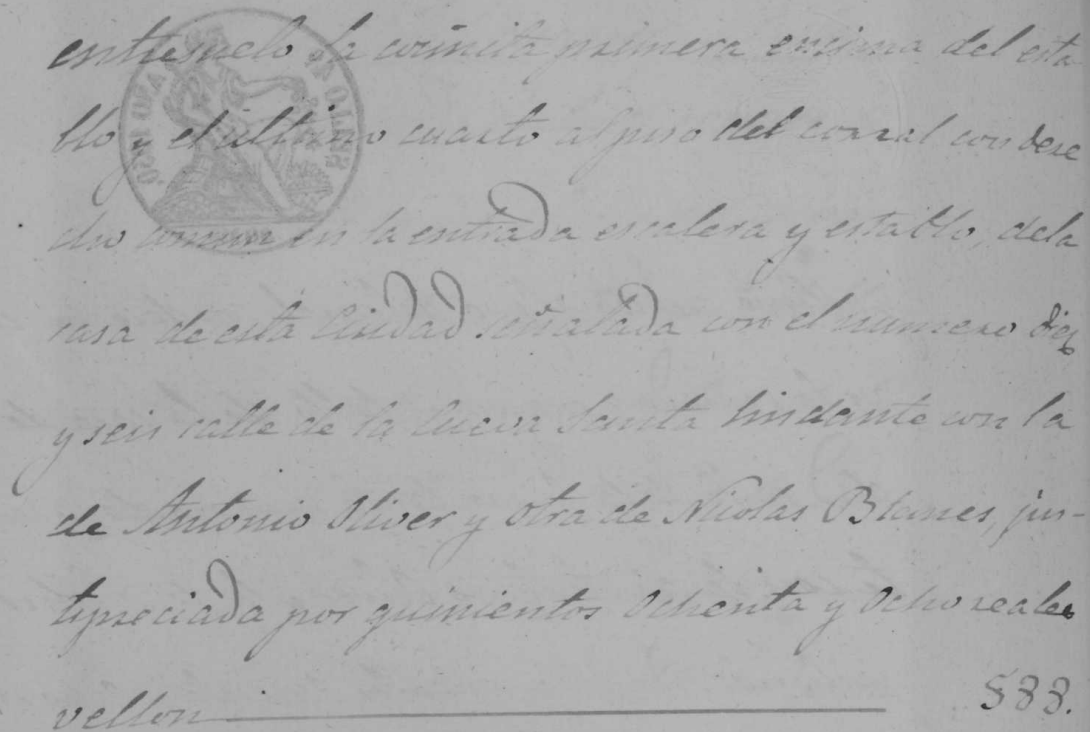 entresuelo la cosinita primera encima del esta
blo y el ultimo cuarto al piso del corral con dere
cho comun en la entrada escalera y establo, dela
casa de esta Ciudad señalada con el numero diez
y seis calle de la Cueva Santa lindante con la
de Antonio Oliver y otra de Nicolas Blanes, jus-
tipreciada por quinientos ochenta y ocho reales
vellon 588.